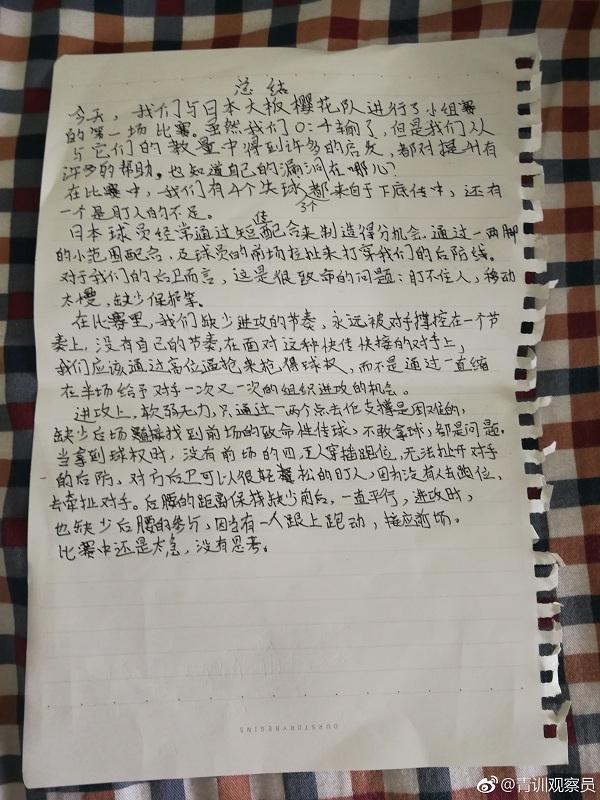 总结
今天，我们与日本大板樱花队进行了小组赛
的第一场比赛。虽然我们0:4输了，但是我们从
与它们的较量中得到许多的启发，都对提升有
许多的帮助。也知道自己的漏洞在哪儿？
在比赛中，我们有4个失球都来自于下底传中，还有
3个
一个是盯人的不足。
日本球员经常通过短传配合来制造得分机会。通过一两脚
的小范围配合，及球员的前场拉扯来打穿我们的后防线。
对于我们的后卫而言，这是很致命的问题：盯不住人，移动
太慢，缺少保护等。
在比赛里，我们缺少进攻的节奏，永远被对手掌控在一个节
奏上，没有自己的节奏，在面对这种快传快接的对手上，
我们应该通过高位逼抢来抢得球权，而不是通过一直缩
在半场给予对手一次又一次的组织进攻的机会。
进攻上，软弱无力，只通过一两个点去作支撑是困难的，
缺少后场直接找到前场的致命性传球，不敢拿球，都是问题。
当拿到球权时，没有前场的四、五人穿插跑位，无法扯开对手
的后防，对方后卫可以很轻松的盯人，因为没有人去跑位，
去牵扯对手。后腰的距离保持缺少前后，一直平行，进攻时，
也缺少后腰的参与，因当有一人跟上跑动，接应前场。
比赛中还是太急，没有思考。
OURSTORYBEGINS
@青训观察员